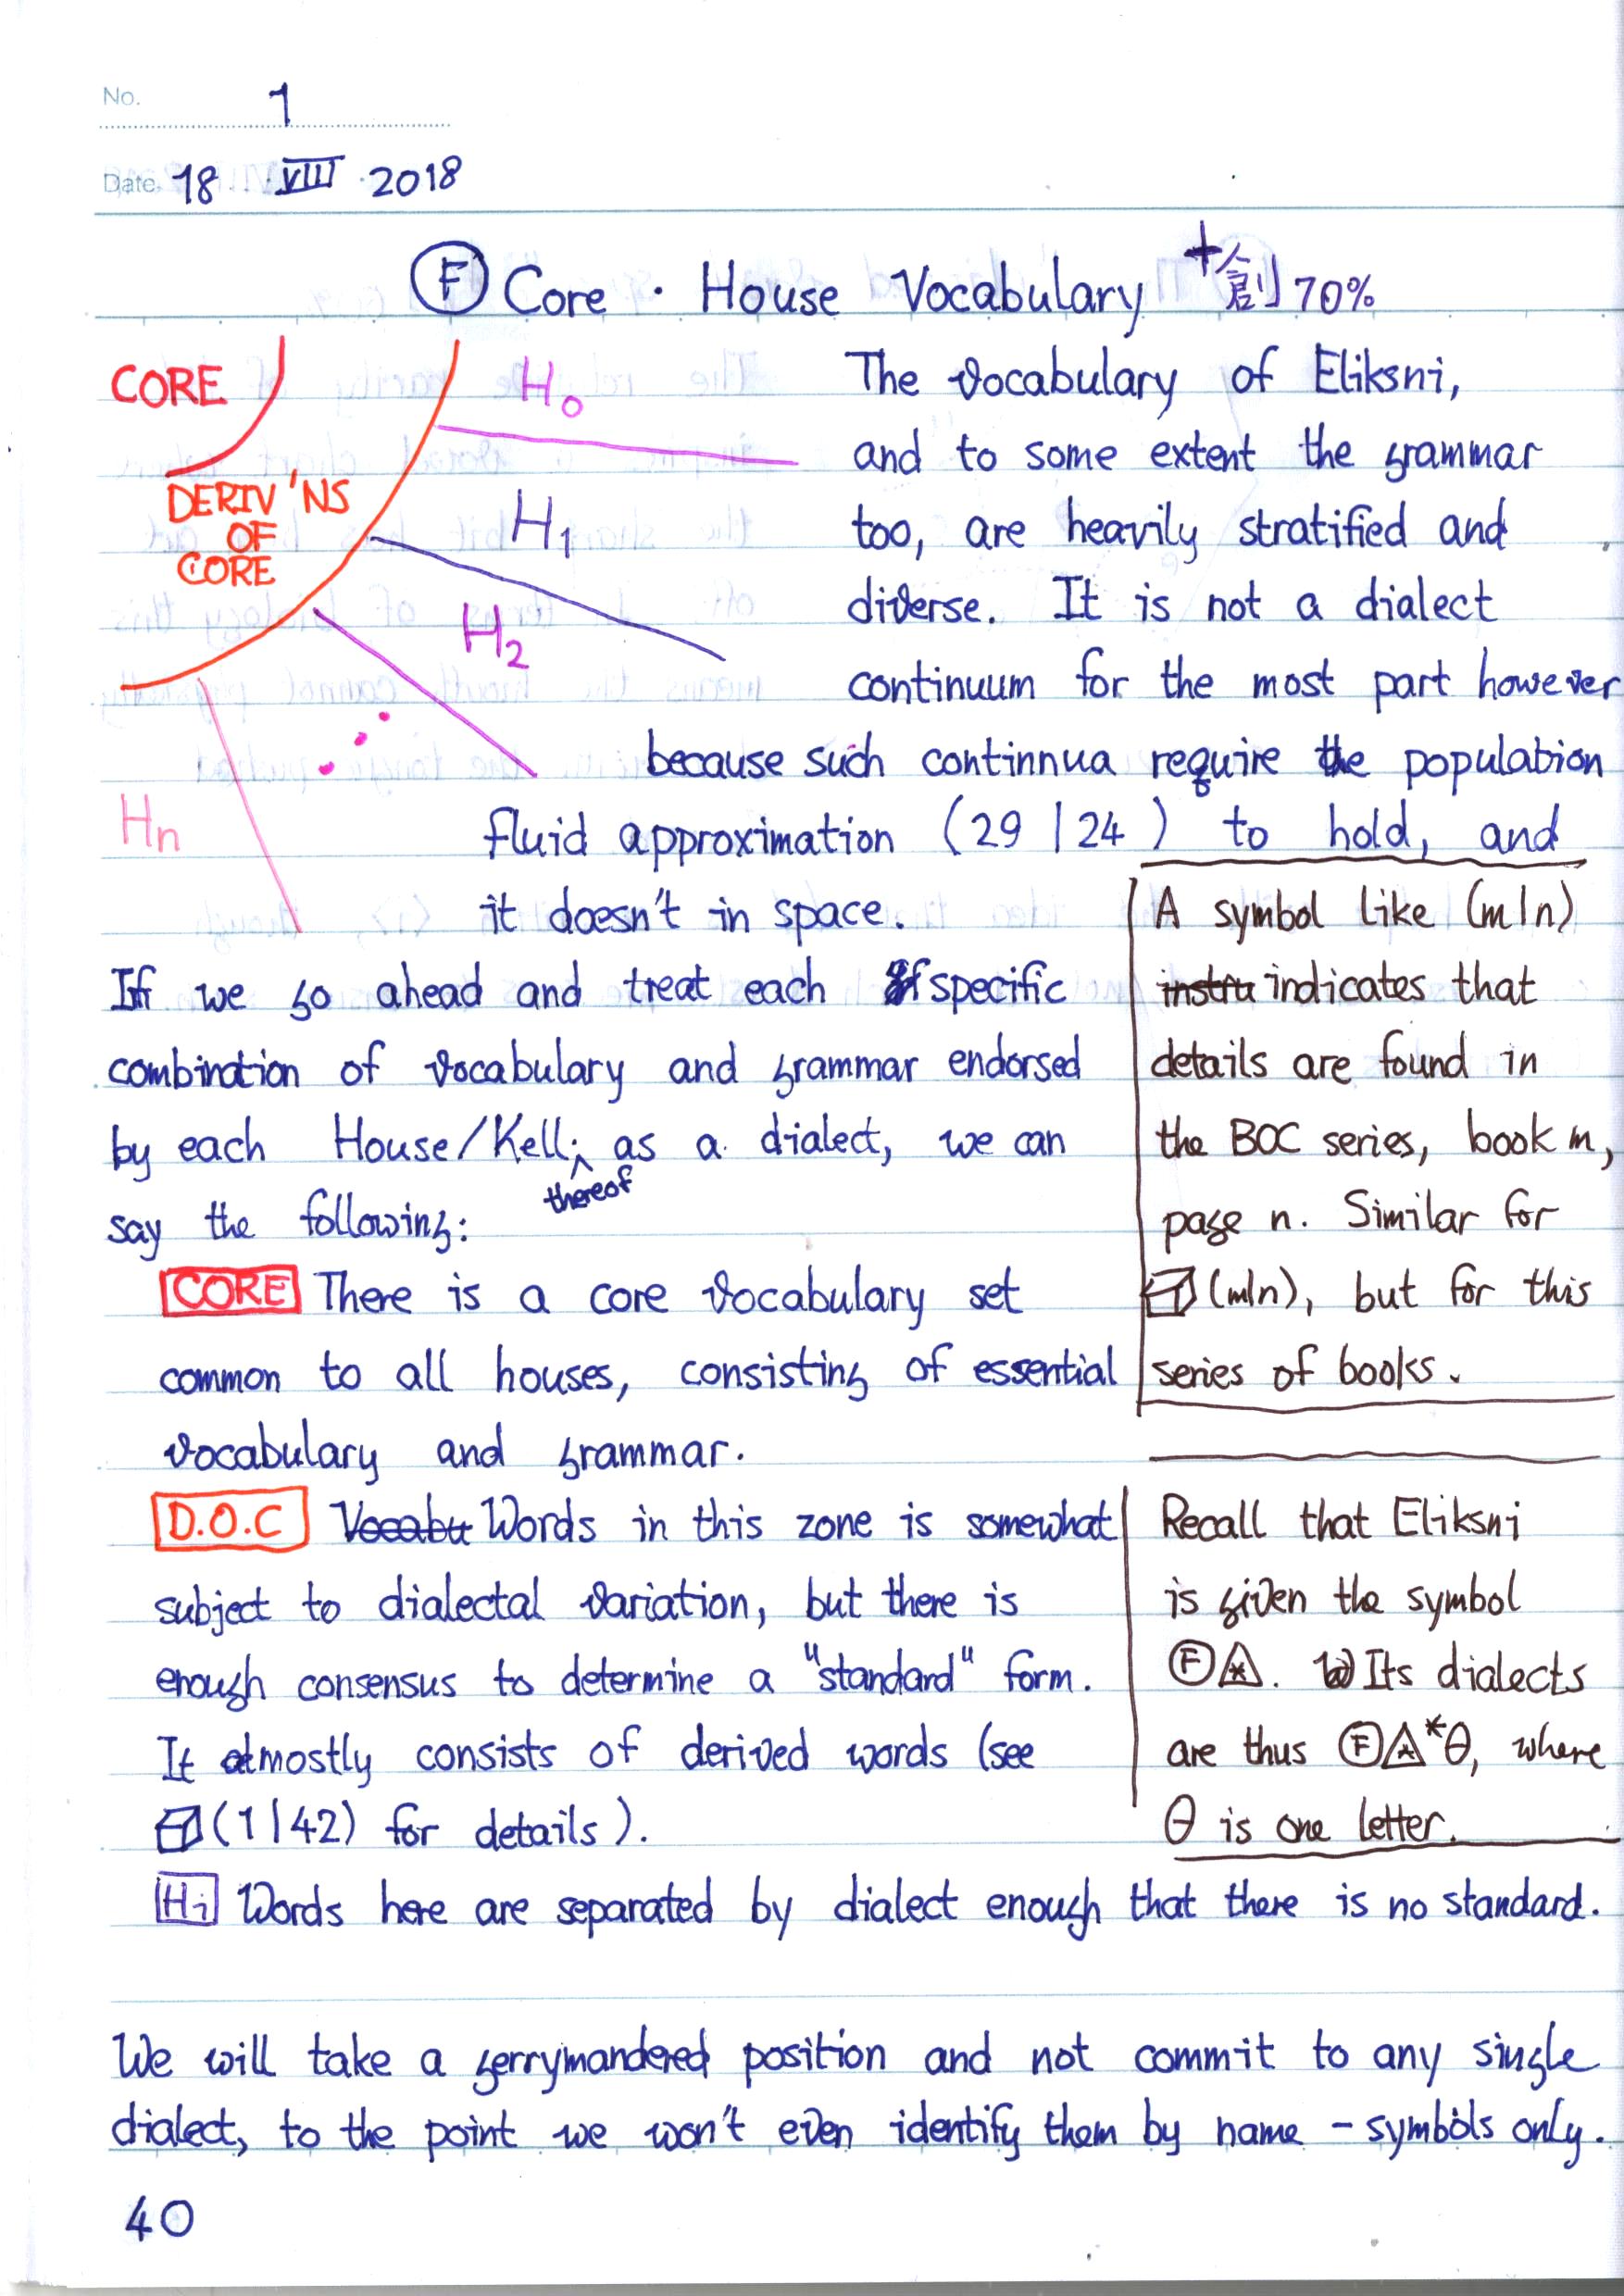 No. 1
Date. 18 · VIII · 2018
Ⓕ Core · House Vocabulary +創 70%
CORE
DERIV'NS
OF
CORE
H₀
H₁
H₂
Hn
The vocabulary of Eliksni,
and to some extent the grammar
too, are heavily stratified and
diverse. It is not a dialect
continuum for the most part however
because such continnua require the population
fluid approximation (29|24) to hold, and
it doesn't in space.
If we go ahead and treat each specific
combination of vocabulary and grammar endorsed
by each House/Kell thereof as a dialect, we can
say the following:
CORE There is a core vocabulary set
common to all houses, consisting of essential
vocabulary and grammar.
D.O.C Vocabu Words in this zone is somewhat
subject to dialectal variation, but there is
enough consensus to determine a "standard" form.
It mostly consists of derived words (see
(1|42) for details).
Hi Words here are separated by dialect enough that there is no standard.
A symbol like (m|n)
instru indicates that
details are found in
the BOC series, book m,
page n. Similar for
(m|n), but for this
series of books.
Recall that Eliksni
is given the symbol
Ⓕ△. Its dialects
are thus Ⓕ△*θ, where
θ is one letter.
We will take a gerrymandered position and not commit to any single
dialect, to the point we won't even identify them by name – symbols only.
40